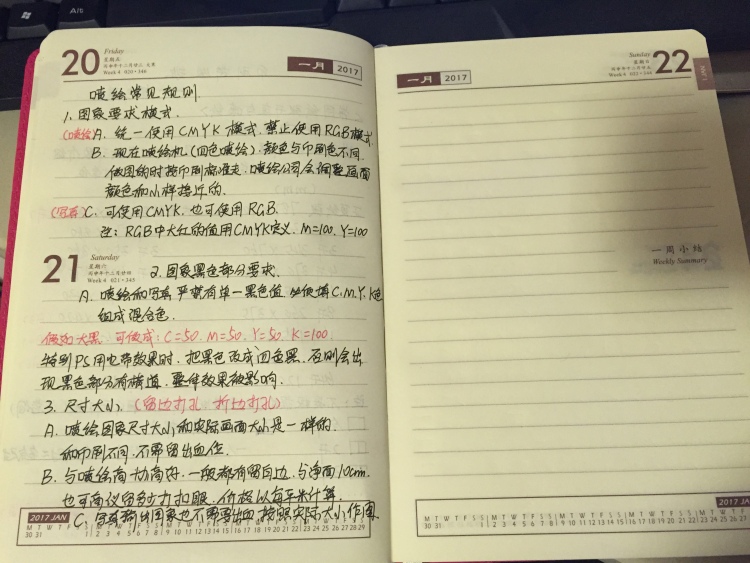 Alt
20
Friday
星期五
Week 4 020 · 346
一月 2017
喷绘常见规则
1. 图象要求模式.
(喷绘) A. 统一使用CMYK模式. 禁止使用RGB模式
B. 现在喷绘机(四色喷绘). 颜色与印刷色不同.
做图的时按印刷标准走. 喷绘公司会调整画面
颜色和小样接近的.
(写真) C. 可使用CMYK. 也可使用RGB.
注: RGB中大红的值用CMYK定义. M=100. Y=100
21
Saturday
星期六
Week 4 021 · 345
2. 图象黑色部分要求.
A. 喷绘和写真严禁有单一黑色值. 必使填C.M.Y.K色
组成混合色.
假如大黑. 可做成: C=50. M=50. Y=50. K=100.
特别PS用它带效果时. 把黑色改成四色黑. 否则会出
现黑色部分有横道. 整体效果被影响.
3. 尺寸大小. (留边打孔 折边打孔)
A. 喷绘图象尺寸大小和实际画面大小是一样的.
和印刷不同. 不需留出血位.
B. 与喷绘商协商好. 一般都有留白边. 与净画10cm.
也可商议留多少打扣眼. 价格以每平米计算.
C. 写真输出图象也不需要出血. 按照实际大小作画
2017 JAN
M T W T F S S M T W T F S S M T W T F S S M T W T F S S M T W T F S S
30 31 1 2 3 4 5 6 7 8 9 10 11 12 13 14 15 16 17 18 19 20 21 22 23 24 25 26 27 28 29
一月 2017
Sunday
星期日
Week 4 022 · 344
22
JAN/1
一周小结
Weekly Summary
2017 JAN
M T W T F S S M T W T F S S M T W T F S S M T W T F S S
30 31 1 2 3 4 5 6 7 8 9 10 11 12 13 14 15 16 17 18 19 20 21 22 23 24 25 26 27